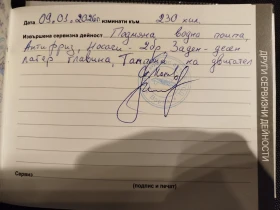 Дата 09.01.2026г изминати км. 230 хил.
Извършена сервизна дейност Подмяна водна помпа,
Антифриз, Носачи - 2бр, Заден - десен
лагер Главина, Тампони на двигател
Сервиз
(подпис и печат)
ДРУГИ СЕРВИЗНИ ДЕЙНОСТИ